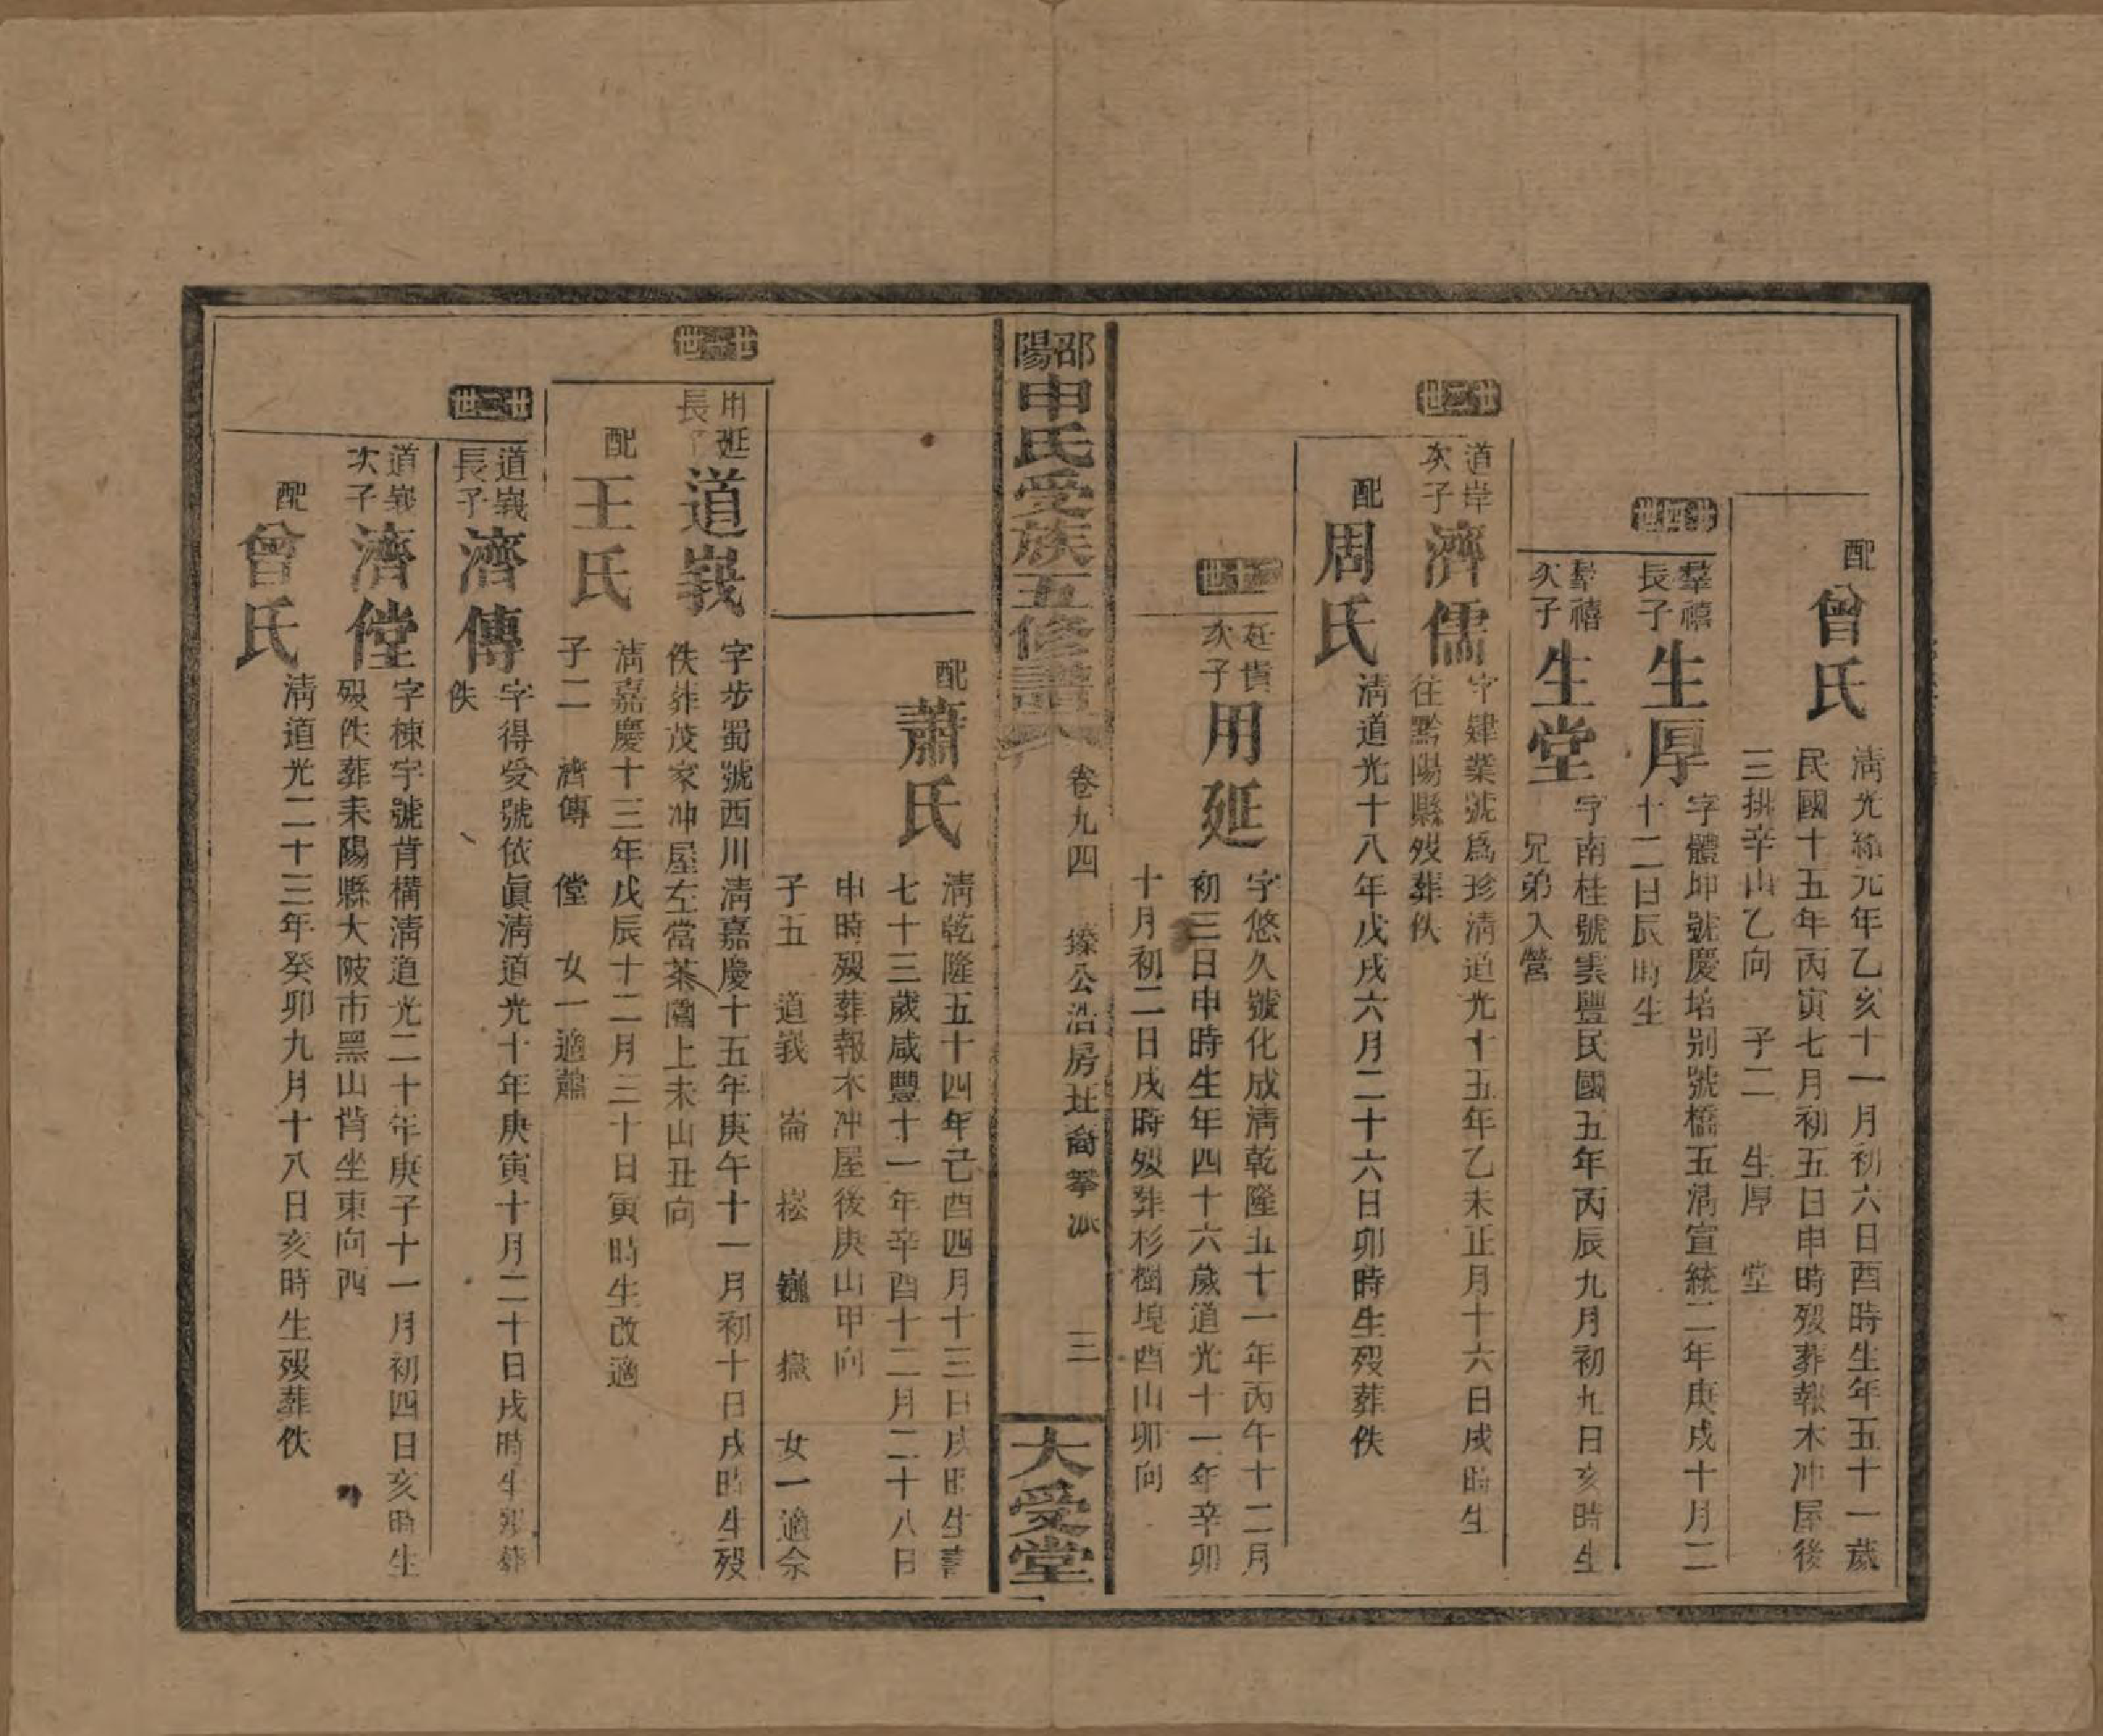 配
曾氏
淸光緖元年乙亥十一月初六日酉時生年五十一歲
民國十五年丙寅七月初五日申時歿葬報木冲屋後
三排辛山乙向 子二 生厚 堂
廿四世
羣禧
長子
生厚
字體坤號慶培别號橋五淸宣統二年庚戌十月二
十二日辰時生
羣禧
次子
生堂
字南桂號雲豐民國五年丙辰九月初九日亥時生
兄弟入營
廿二世
道岸
次子
濟儒
字肄業號爲珍淸道光十五年乙未正月十六日戌時生
往黔陽縣歿葬佚
配
周氏
淸道光十八年戊戌六月二十六日卯時生歿葬佚
二十世
廷貴
次子
用延
字悠久號化成淸乾隆五十一年丙午十二月
初三日申時生年四十六歲道光十一年辛卯
十月初二日戌時歿葬杉樹塊酉山卯向
邵陽
申氏受族五修譜
卷九四 公浩房廷裔派 三
大受堂
配
蕭氏
淸乾隆五十四年己酉四月十三日戌時生壽
七十三歲咸豐十一年辛酉十二月二十八日
申時歿葬報木冲屋後庚山甲向
子五 道峩 崙 崧 巍 嶽 女一適佘
廿一世
用延
長子
道峩
字步蜀號西川淸嘉慶十五年庚午十一月初十日戌時生歿
佚葬茂家冲屋左當茶園上未山丑向
配
王氏
淸嘉慶十三年戊辰十二月三十日寅時生改適
子二 濟傳 儅 女一適蕭
廿二世
道峩
長子
濟傳
字得受號依眞淸道光十年庚寅十月二十日戌時生歿葬
佚
道峩
次子
濟儅
字棟宇號肯構淸道光二十年庚子十一月初四日亥時生
歿佚葬耒陽縣大陂市黑山背坐東向西
配
曾氏
淸道光二十三年癸卯九月十八日亥時生歿葬佚